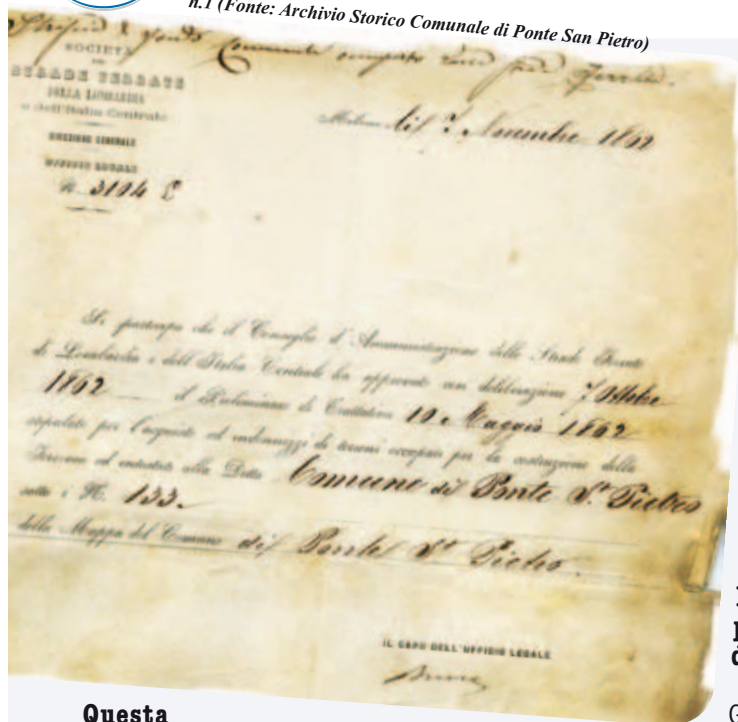 n.1 (Fonte: Archivio Storico Comunale di Ponte San Pietro)
SOCIETÀ
STRADE FERRATE
DELLA LOMBARDIA
e dell'Italia Centrale
DIREZIONE GENERALE
LEGALE
N. 3104
Novembre 1862
Si partecipa che il Consiglio d'Amministrazione delle Strade Ferrate
di Lombardia e dell'Italia Centrale ha approvato con deliberazione 7 Ottobre
1862 il Preliminare di Trattativa 10 Maggio 1862
stipulato per l'acquisto ed indennizzo di terreni occupati per la costruzione della
Ferrovia ed intestati alla Ditta Comune di Ponte St. Pietro
sotto i N. 133.
della Mappa del Comune di Ponte St Pietro.
IL CAPO DELL'UFFICIO LEGALE
Questa